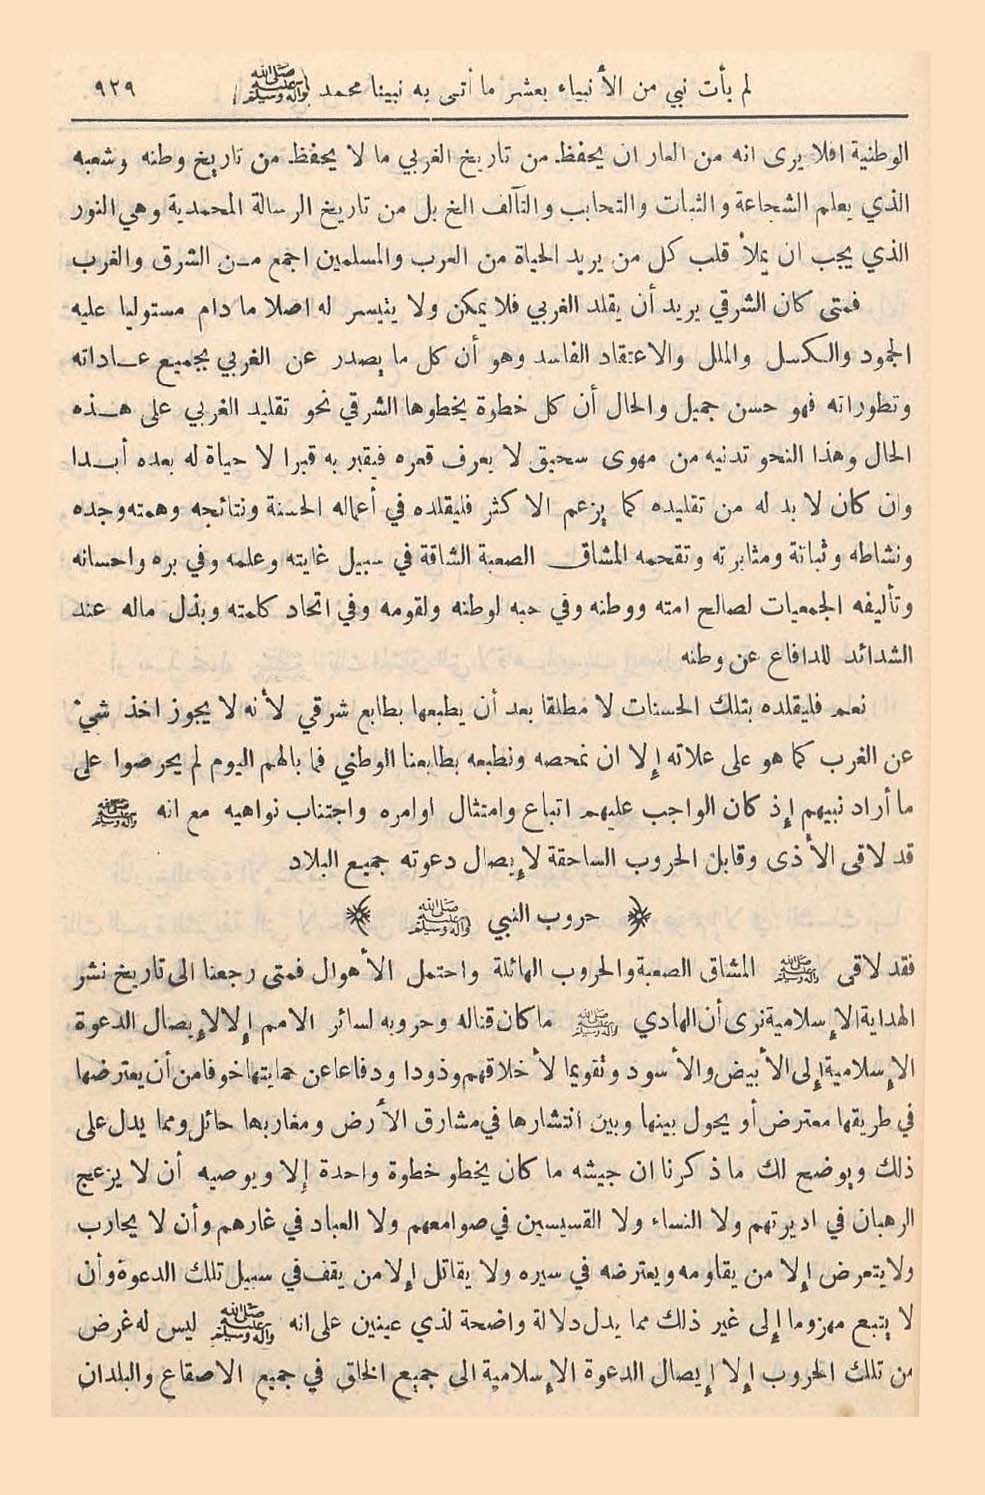 لم يأت نبي من الأنبياء بعشر ما أتى به نبينا محمد (ﷺ) ٩٢٩
الوطنية افلا يرى انه من العار ان يحفظ من تاريخ الغربي ما لا يحفظ من تاريخ وطنه وشعبه
الذي يعلم الشجاعة والثبات والتحابب والتآلف الخ بل من تاريخ الرسالة المحمدية وهي النور
الذي يجب ان يملأ قلب كل من يريد الحياة من العرب والمسلمين اجمع من الشرق والغرب
فمتى كان الشرقي يريد أن يقلد الغربي فلا يمكن ولا يتيسر له اصلا ما دام مستوليا عليه
الجمود والكسل والملل والاعتقاد الفاسد وهو أن كل ما يصدر عن الغربي بجميع عاداته
وتطوراته فهو حسن جميل والحال أن كل خطوة يخطوها الشرقي نحو تقليد الغربي على هذه
الحال وهذا النحو تدنيه من مهوى سحيق لا يعرف قعره فيقبر به قبرا لا حياة له بعده أبدا
وان كان لا بد له من تقليده كما يزعم الاكثر فليقلده في أعماله الحسنة ونتائجه وهمته وجده
ونشاطه وثباتة ومثابرته وتقحمه المشاق الصعبة الشاقة في سبيل غايته وعلمه وفي بره واحسانه
وتأليفه الجمعيات لصالح امته ووطنه وفي حبه لوطنه ولقومه وفي اتحاد كلمته وبذل ماله عند
الشدائد للدافاع عن وطنه
نعم فليقلده بتلك الحسنات لا مطلقا بعد أن يطبعها بطابع شرقي لأنه لا يجوز اخذ شيء
عن الغرب كما هو على علاته إلا ان نمحصه ونطبعه بطابعنا الوطني فما بالهم اليوم لم يحرصوا على
ما أراد نبيهم إذ كان الواجب عليهم اتباع وامتثال اوامره واجتناب نواهيه مع انه ﷺ
قد لاقى الأذى وقابل الحروب الساحقة لإيصال دعوته جميع البلاد
﴿ حروب النبي ﷺ ﴾
فقد لاقى ﷺ المشاق الصعبة والحروب الهائلة واحتمل الأهوال فمتى رجعنا الى تاريخ نشر
الهداية الإسلامية نرى أن الهادي ﷺ ما كان قتاله وحروبه لسائر الامم إلا لإيصال الدعوة
الإسلامية إلى الأبيض والأسود وتقويما لأخلاقهم وذودا ودفاعا عن حمايتها خوفا من أن يعترضها
في طريقها معترض أو يحول بينها وبين انتشارها في مشارق الأرض ومغاربها حائل ومما يدل على
ذلك ويوضح لك ما ذكرنا ان جيشه ما كان يخطو خطوة واحدة إلا ويوصيه أن لا يزعج
الرهبان في اديرتهم ولا النساء ولا القسيسين في صوامعهم ولا العباد في غارهم وأن لا يحارب
ولا يتعرض إلا من يقاومه ويعترضه في سيره ولا يقاتل إلا من يقف في سبيل تلك الدعوة وأن
لا يتبع مهزوما إلى غير ذلك مما يدل دلالة واضحة لذي عينين على انه ﷺ ليس له غرض
من تلك الحروب إلا إيصال الدعوة الإسلامية الى جميع الخلق في جميع الاصقاع والبلدان